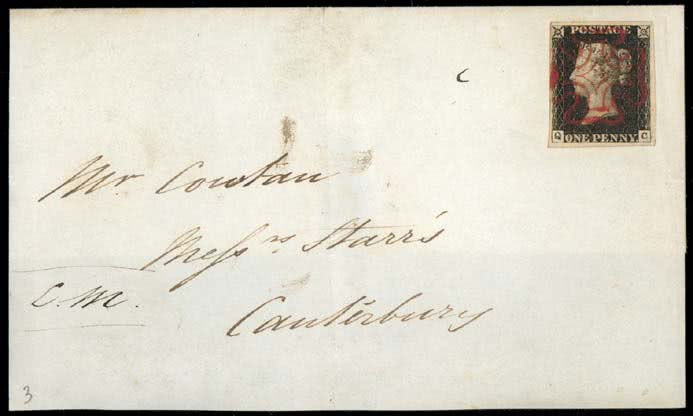 POSTAGE
Q ONE PENNY. C
Mr Cowtan
Messrs Starr's
C.M.
Canterbury
3